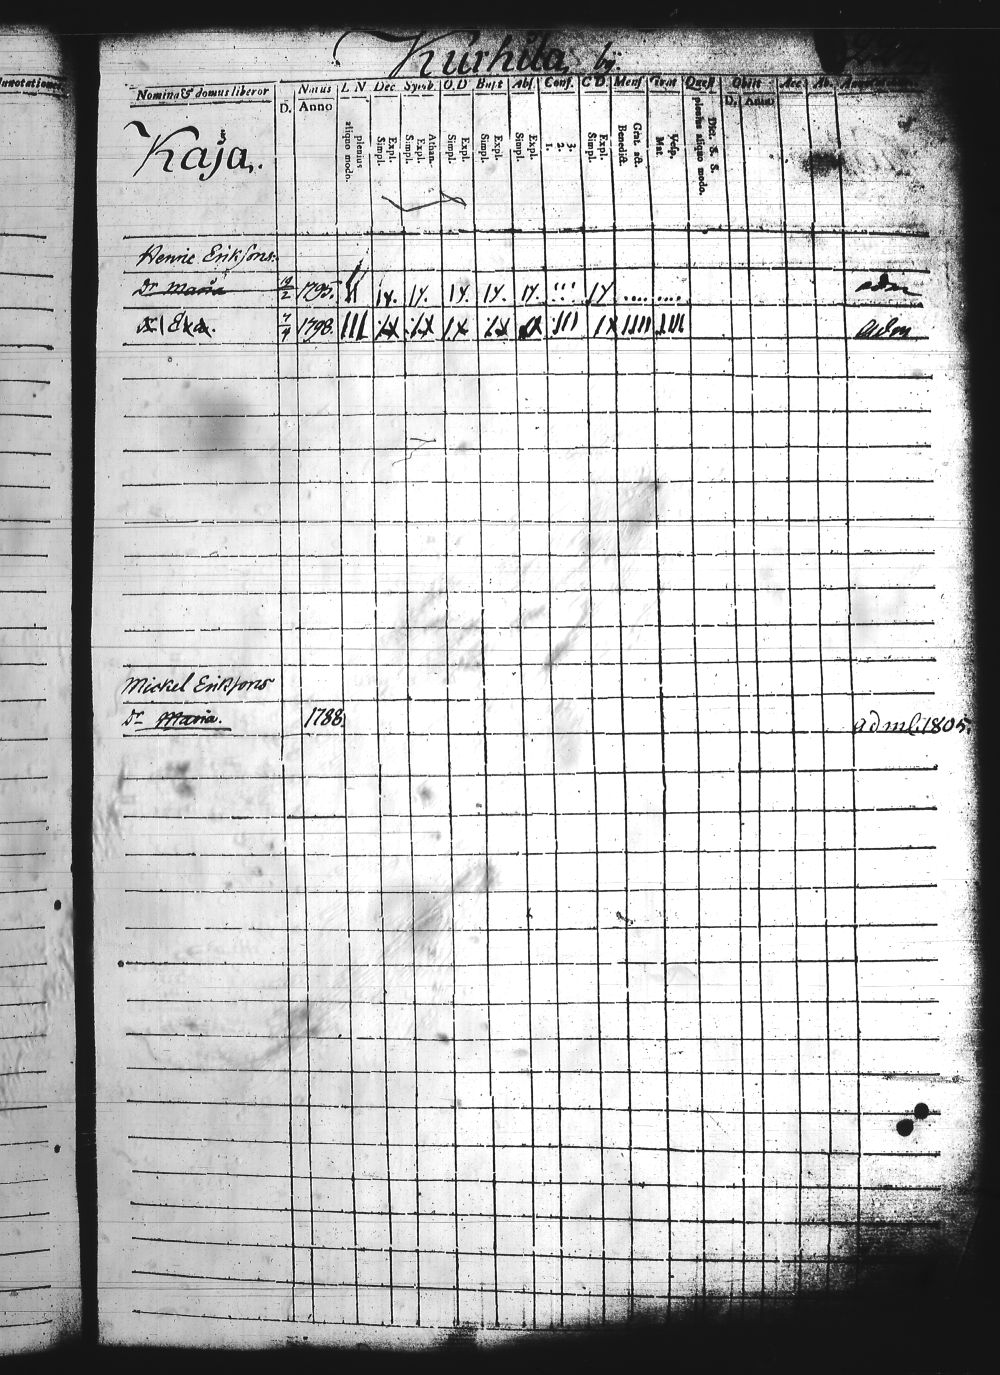 Kurhila by.
Annotationes
Nomina & domus liberor
D.
Natus
Anno
L N
plenius
aliquo modo.
Dec
Expl.
Simpl.
Symb.
Athan.
Expl.
Simpl.
O.D
Expl.
Simpl.
Bapt
Expl.
Simpl.
Abs.
Expl.
Simpl.
Conf.
3.
2.
1.
C D.
Expl.
Simpl.
Mens
Grat. act.
Benedict.
Orat
Vesp.
Mat
Quæst
Dict. S. S.
plenius aliquo modo.
Obiit
D. Anno
Acc.
Ab.
Kaja.
Henric Eriksons.
Dr Maria 19/2 1795. adm
Dr Eva. 7/4 1798. adm
Mickel Eriksons
Dr Maria. 1788 adml. 1805.